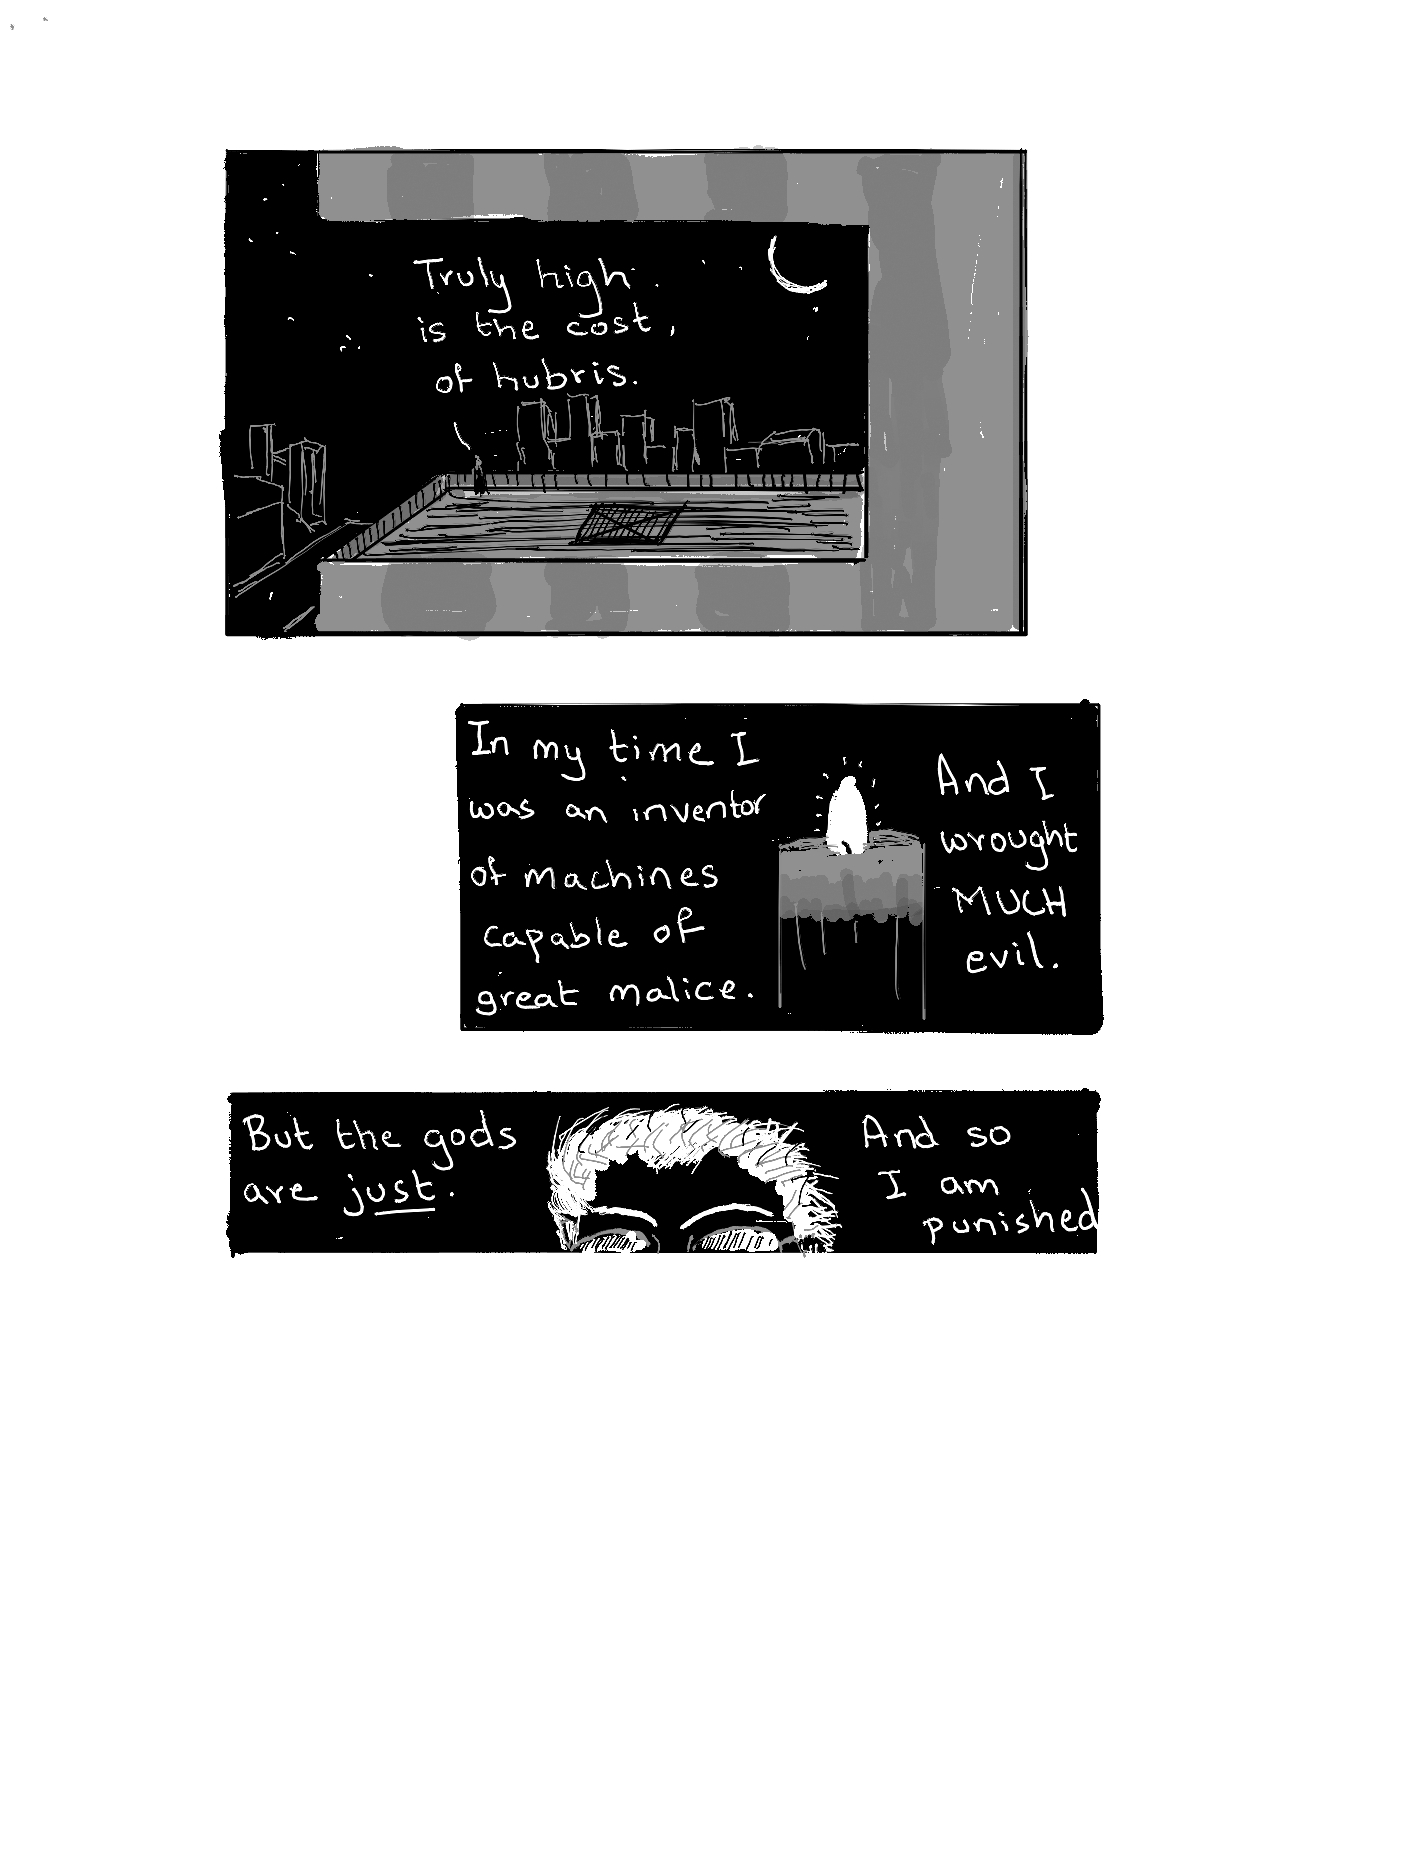 Truly high
is the cost,
of hubris.
In my time I
was an inventor
of machines
capable of
great malice.
And I
wrought
MUCH
evil.
But the gods
are just.
And so
I am
punished